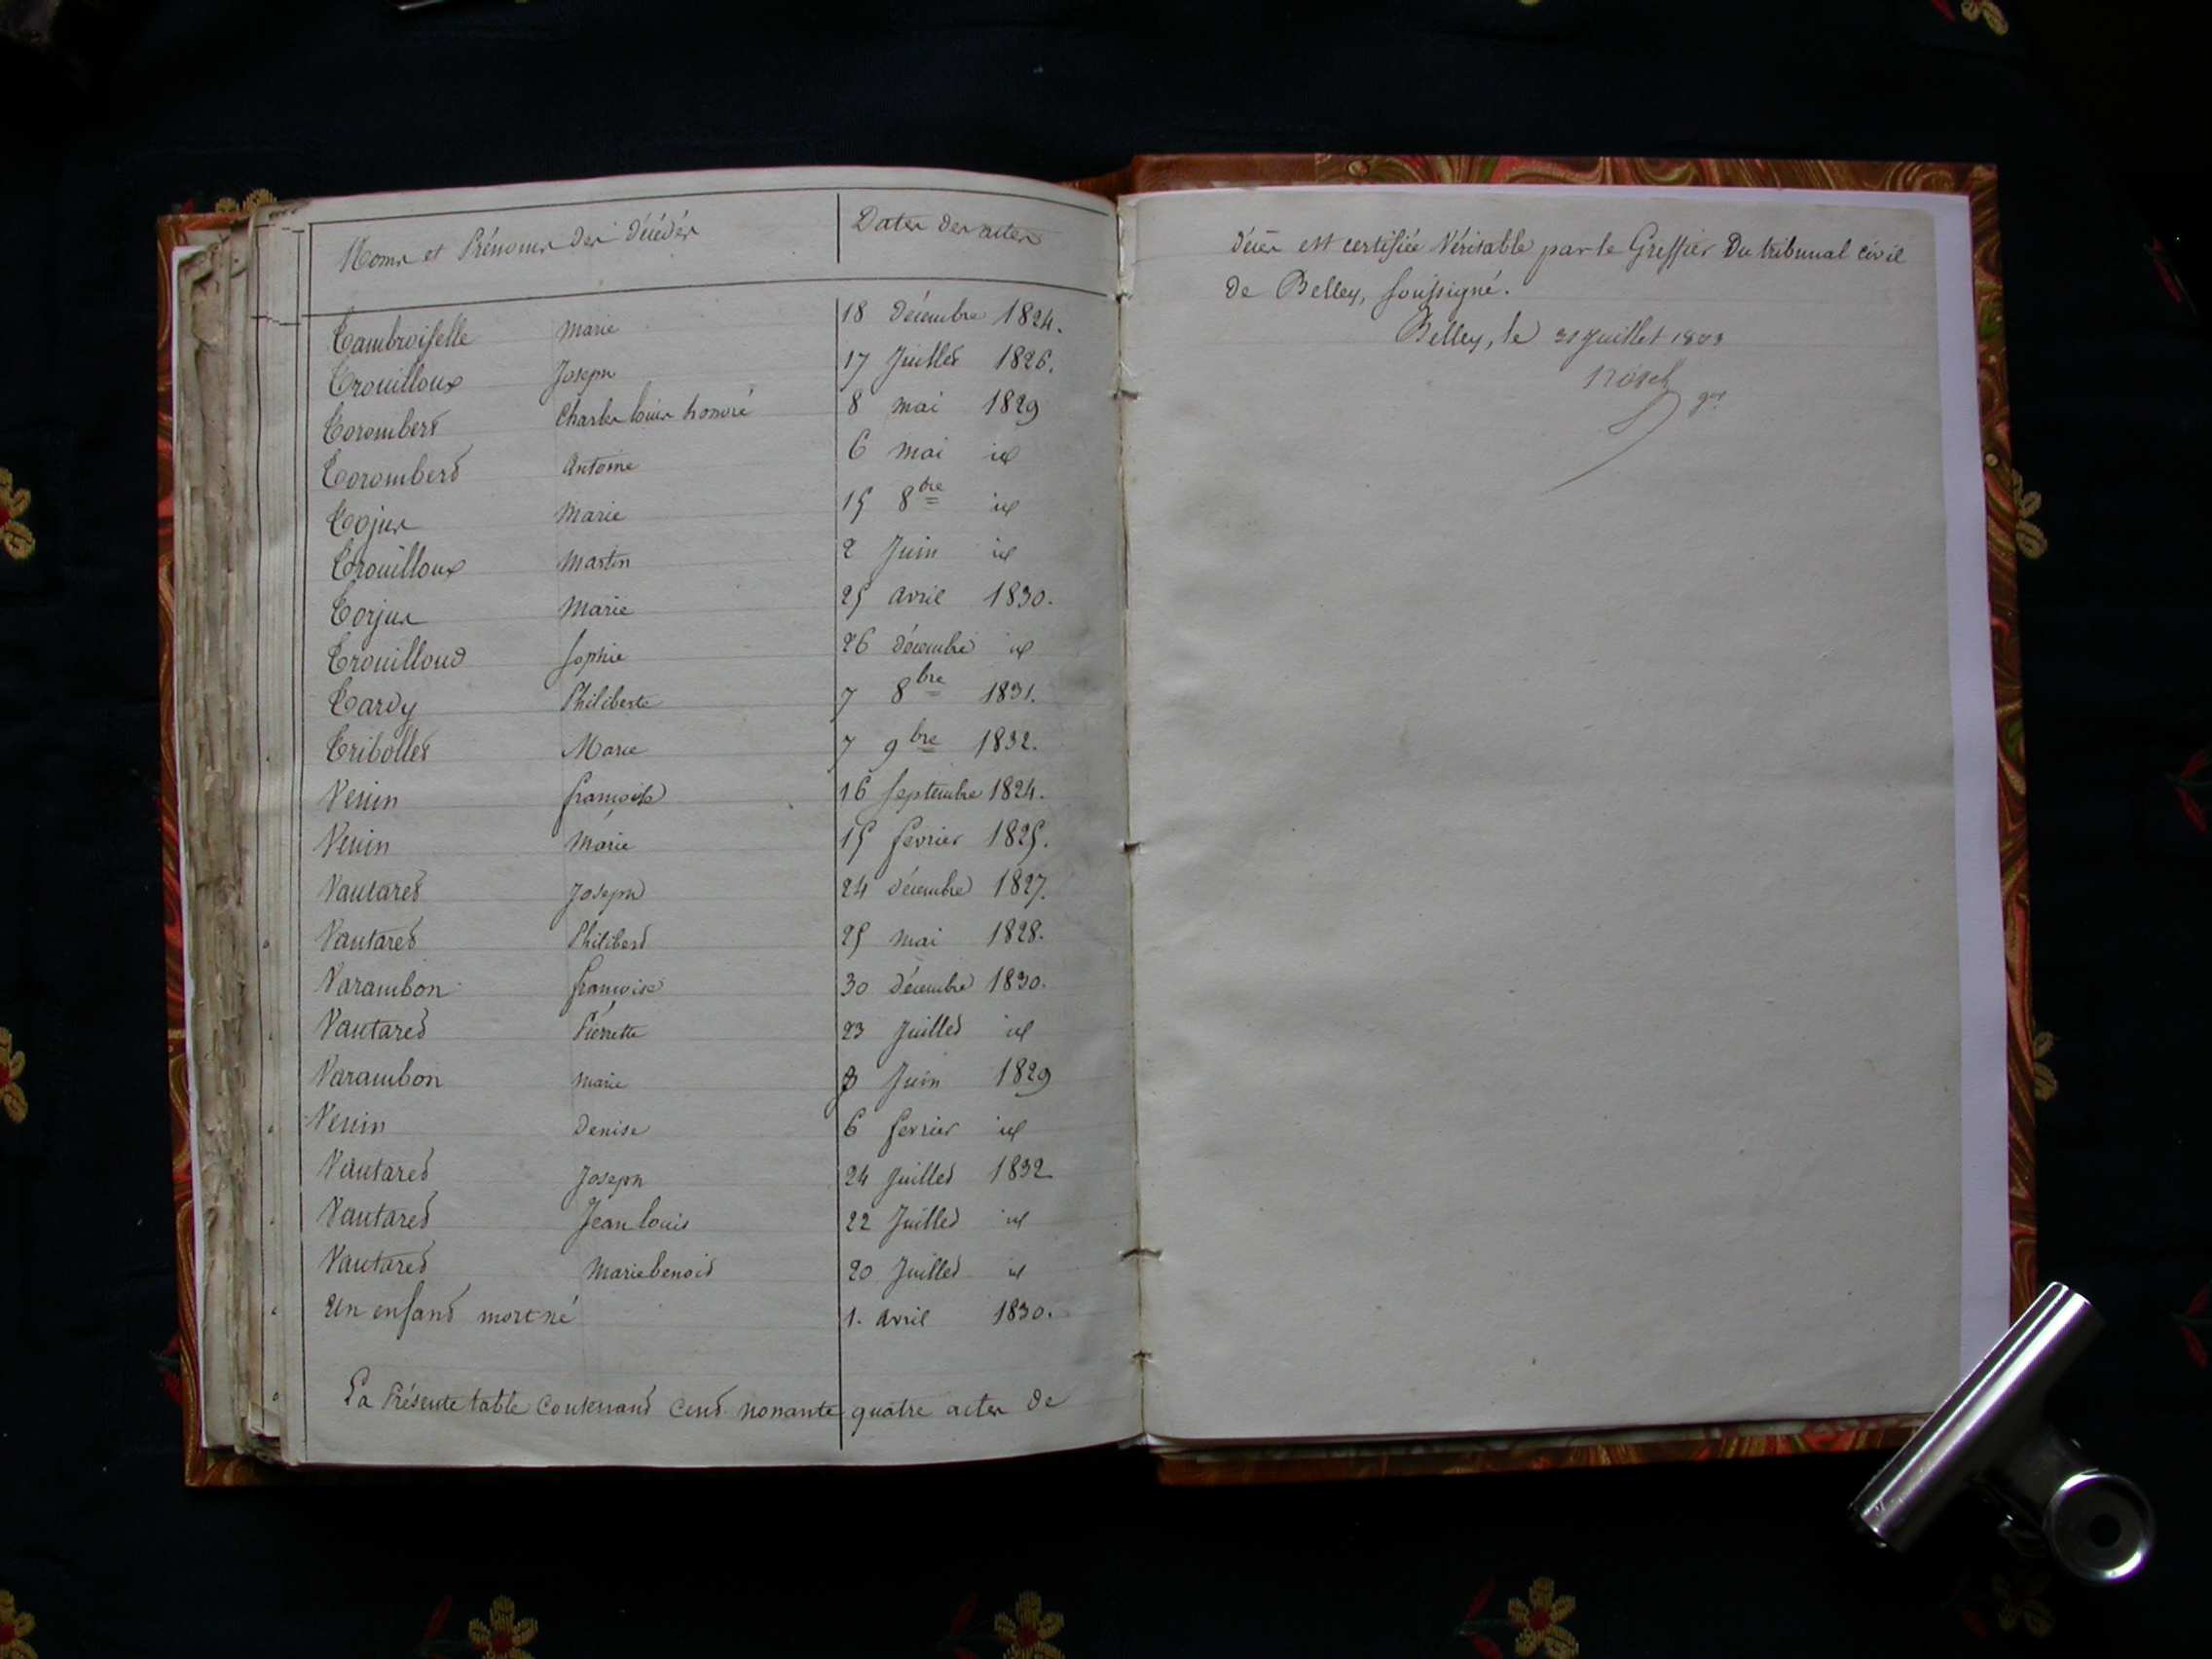 Noms et Prénoms des décédés Dates des actes
Tambroiselle Marie 18 décembre 1824.
Trouilloux Joseph 17 Juillet 1826.
Torombert Charles louis honoré 8 mai 1829
Torombert Antoine 6 mai id
Tojus Marie 15 8bre id
Trouilloux Martin 2 Juin id
Torjus Marie 25 avril 1830.
Trouilloud Sophie 26 décembre id
Tardy Philiberte 7 8bre 1831.
Tribollet Marie 7 9bre 1832.
françoise 16 Septembre 1824.
Marie 15 fevrier 1825.
Vautaret Joseph 24 décembre 1827.
Vautaret Philibert 25 mai 1828.
Varambon françoise 30 décembre 1830.
Vautaret Pierrette 23 Juillet id
Varambon Marie Juin 1829
Denise 6 fevrier id
Vautaret Joseph 24 Juillet 1832
Vautaret Jean louis 22 Juillet id
Vautaret Marie benoit 20 Juillet id
Un enfant mort né 1. avril 1830.
La Présente table contenant cent nonante quatre actes de
décès est certifiée Véritable par le Greffier Du tribunal civil
de Belley, soussigné.
Belley, le 31 Juillet